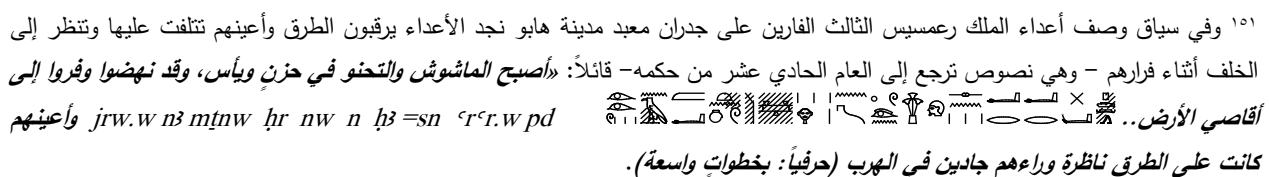 ١٥١ وفي سياق وصف أعداء الملك رعمسيس الثالث الفارين على جدران معبد مدينة هابو نجد الأعداء يرقبون الطرق وأعينهم تتلفت عليها وتنظر إلى
الخلف أثناء فرارهم – وهي نصوص ترجع إلى العام الحادي عشر من حكمه– قائلاً: «أصبح الماشوش والتحنو في حزنٍ ويأس، وقد نهضوا وفروا إلى
أقاصي الأرض.. jrw.w nꜣ mṯnw ḥr nw n ḥꜣ =sn ꜥrꜥr.w pd وأعينهم
كانت على الطرق ناظرة وراءهم جادين في الهرب (حرفياً: بخطواتٍ واسعة).